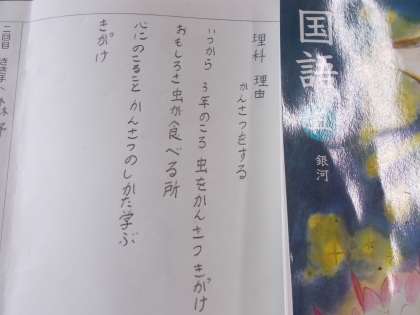 国語
五
銀河
理科 理由
かんさつをする
いつから 3年のころ 虫をかんさつ きがけ
おもしろさ 虫が食べる所
心にのこること かんさつのしかた学ぶ
きがけ
二日目